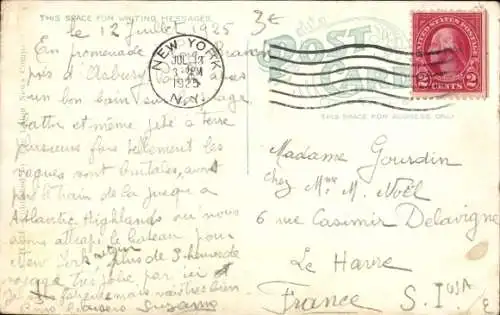 THIS SPACE FOR WRITING MESSAGES
le 12 juillet 1925
3€
POST CARD
NEW YORK
JUL 13
PM
1925
N.Y.
UNITED STATES POSTAGE
2 CENTS 2
THIS SPACE FOR ADDRESS ONLY
En promenade
près d'Asbury
un bon bain sur plage
battu et même jeté à terre
plusieurs fois tellement les
vagues sont brutales, avons
pris le train de la jusqu'a
Atlantic Highlands ou nous
avons attrapé le bateau pour
New York plus de 3 heures de
voyage très jolie par ici
bien
Suzanne
Madame Gourdin
chez Mme M. Noël
6 rue Casimir Delavigne
Le Havre
France S. I USA